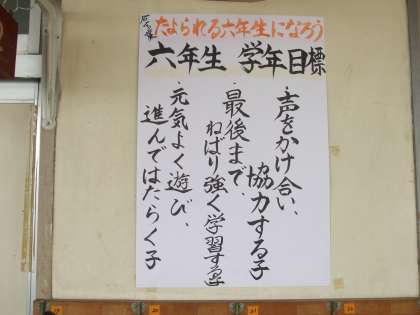 たよられる六年生になろう
六年生 学年目標
・声をかけ合い、
協力する子
・最後まで、
ねばり強く学習する子
・元気よく遊び、
進んではたらく子